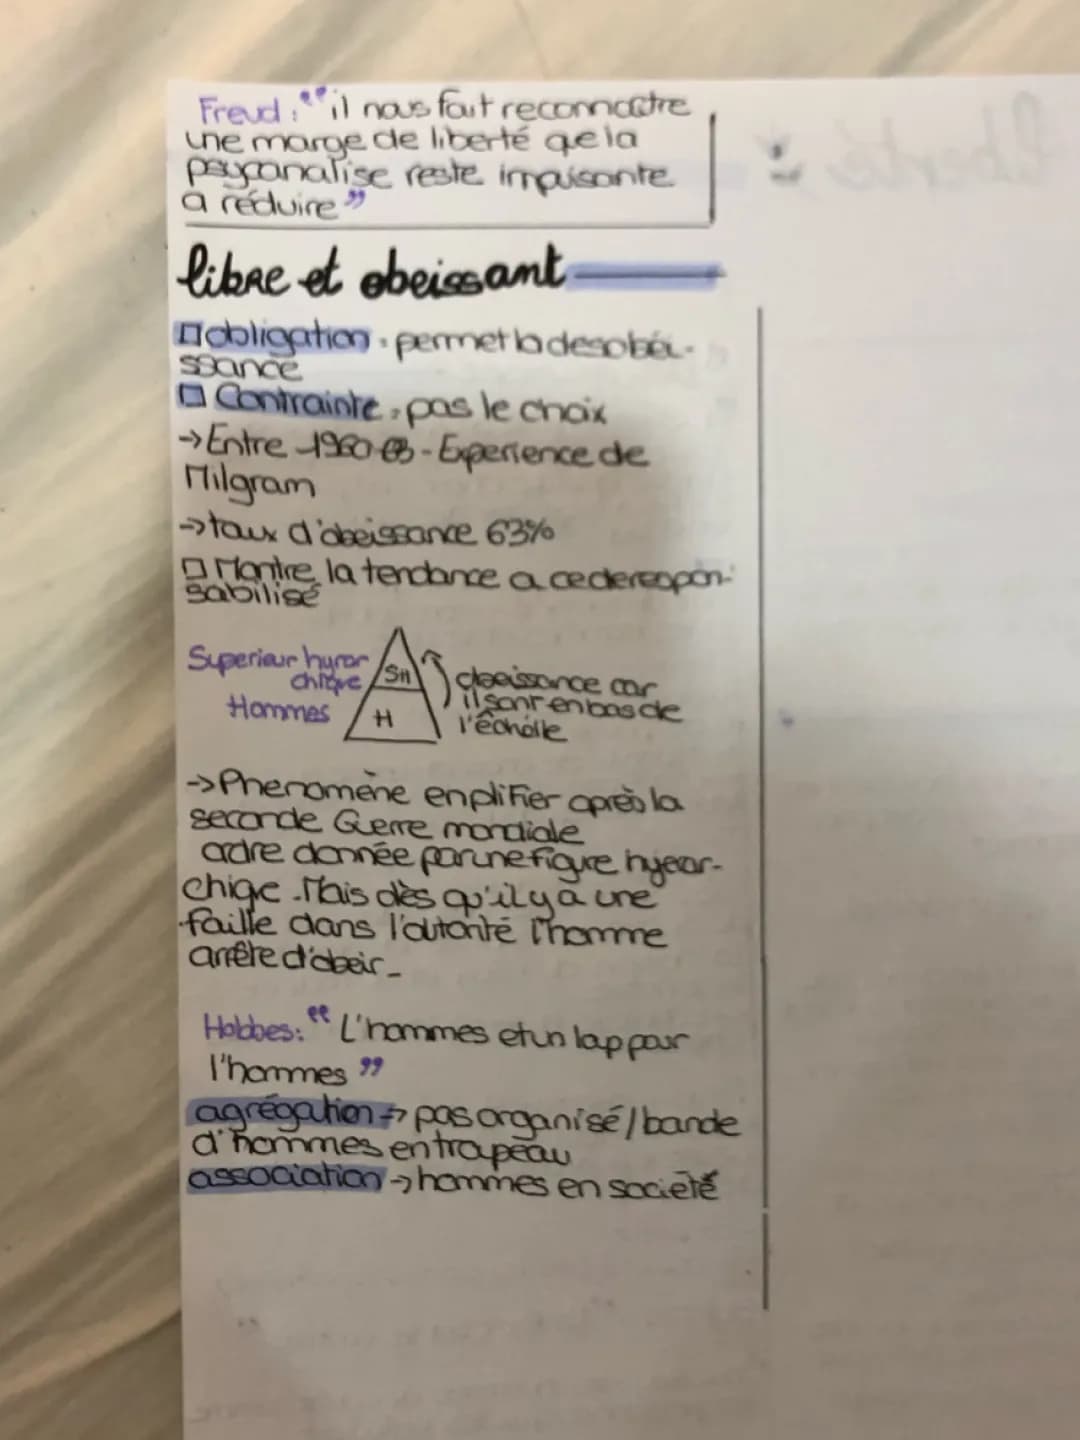 Freud : " il nous faut reconnaitre
une marge de liberté que la
psycanalise reste impuisante
a réduire "
libre et obeissant
obligation : permet la desobéi-
ssance
Contrainte : pas le choix
→ Entre 1960-63 - Experience de
Milgram
→ taux d'obeissance 63%
Montre la tendance a ce deresopon-
sabilisé
Superieur hyrar
chique
SH
Hommes
H
obeissance car
il sont en bas de
l'échelle
→ Phenomène enplifier après la
seconde Guerre mondiale
ordre donnée par une figure hyerar-
chique. Mais dès qu'il y a une
faille dans l'autorité l'homme
arrête d'obeir_
Hobbes: " L'hommes et un loup pour
l'hommes "
agrégation → pas organisé / bande
d'hommes en trapeau
association → hommes en societé
liberté :